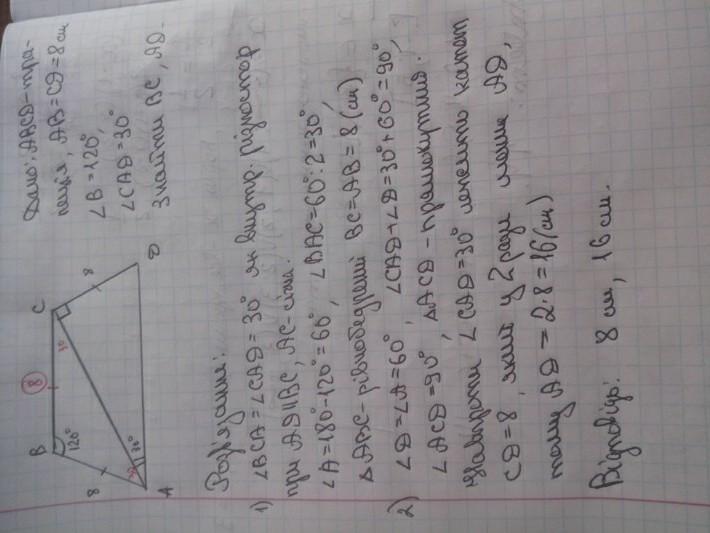 Дано: ABCD - тра-
пеція, AB = CD = 8 см
∠B = 120°,
∠CAD = 30°
Знайти BC, AD.
B
8
C
120°
30
8
8
30
30°
A
D
Розв'язання:
1) ∠BCA = ∠CAD = 30° як внутр. різностор
при AD||BC, AC - січна.
∠A = 180° - 120° = 60°, ∠BAC = 60° : 2 = 30°,
△ABC - рівнобедрений BC = AB = 8 (см)
2) ∠D = ∠A = 60°, ∠CAD + ∠D = 30° + 60° = 90°,
∠ACD = 90°, △ACD - прямокутний.
Навпроти ∠CAD = 30° лежить катет
CD = 8, який у 2 рази менше AD,
тому AD = 2·8 = 16 (см)
Відповідь: 8 см, 16 см.